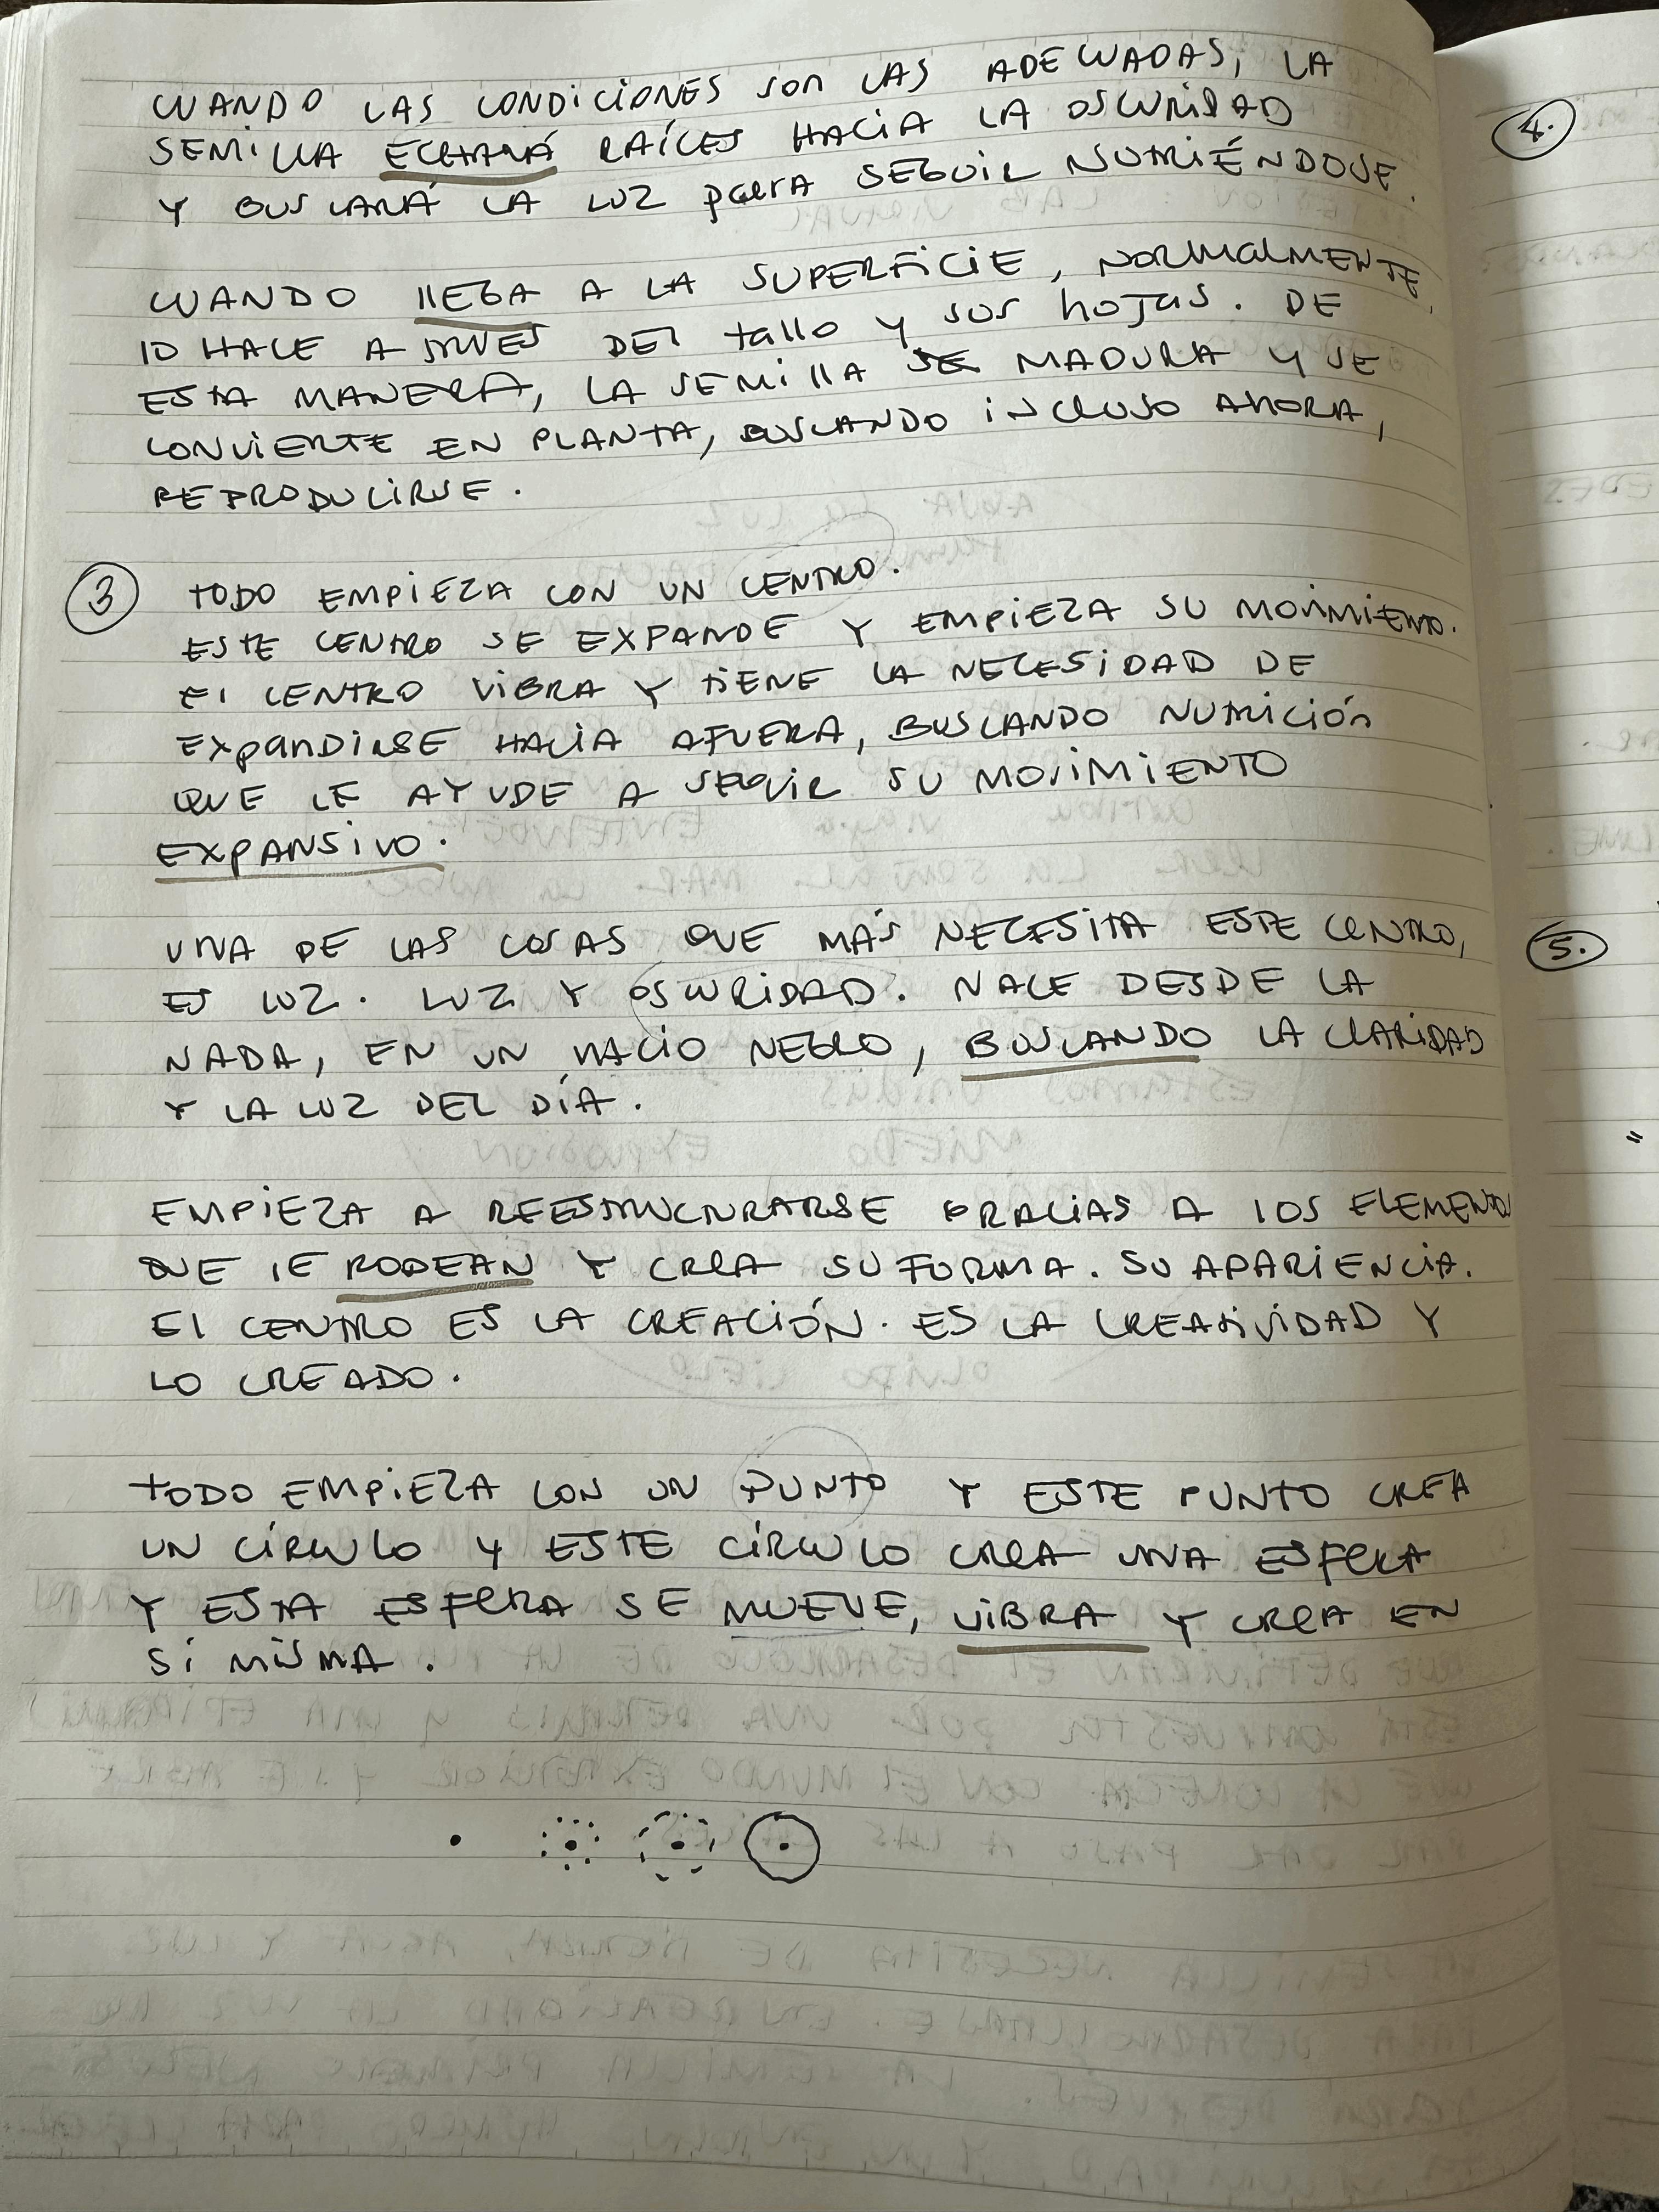 CUANDO LAS CONDICIONES SON LAS ADECUADAS, LA
SEMILLA ECHARÁ RAÍCES HACIA LA OSCURIDAD
Y BUSCARÁ LA LUZ para SEGUIR NUTRIÉNDOSE.
CUANDO llEGA A LA SUPERFICIE, NORMALMENTE,
lO HACE A TRAVÉS DEl tallo Y SUS hOJAS. DE
ESTA MANERA, LA SEMIllA SE MADURA Y SE
CONVIERTE EN PLANTA, BUSCANDO INCLUSO AHORA,
REPRODUCIRSE.
3 TODO EMPIEZA CON UN CENTRO.
ESTE CENTRO SE EXPANDE Y EMPIEZA SU MOVIMIENTO.
El CENTRO VIBRA Y TIENE LA NECESIDAD DE
EXpanDIRSE HACIA AFUERA, BUSCANDO NUTRICIÓN
QUE LE AYUDE A SEGUIR SU MOVIMIENTO
EXPANSIVO.
UNA DE LAS COSAS QUE MÁS NECESITA ESTE CENTRO,
ES LUZ. LUZ Y OSCURIDAD. NACE DESDE LA
NADA, EN UN VACIO NEGRO, BUSCANDO LA CLARIDAD
Y LA LUZ DEL DÍA.
EMPIEZA A REESTRUCTURARSE GRACIAS A lOS ELEMENTOS
QUE lE RODEAN Y CREA SU FORMA. SU APARIENCIA.
El CENTRO ES LA CREACIÓN. ES LA CREATIVIDAD Y
LO CREADO.
TODO EMPIEZA CON UN PUNTO Y ESTE PUNTO CREA
UN CÍRCULO Y ESTE CÍRCULO CREA UNA ESFERA
Y ESTA ESFERA SE MUEVE, VIBRA Y CREA EN
SÍ MISMA.
4.
5.